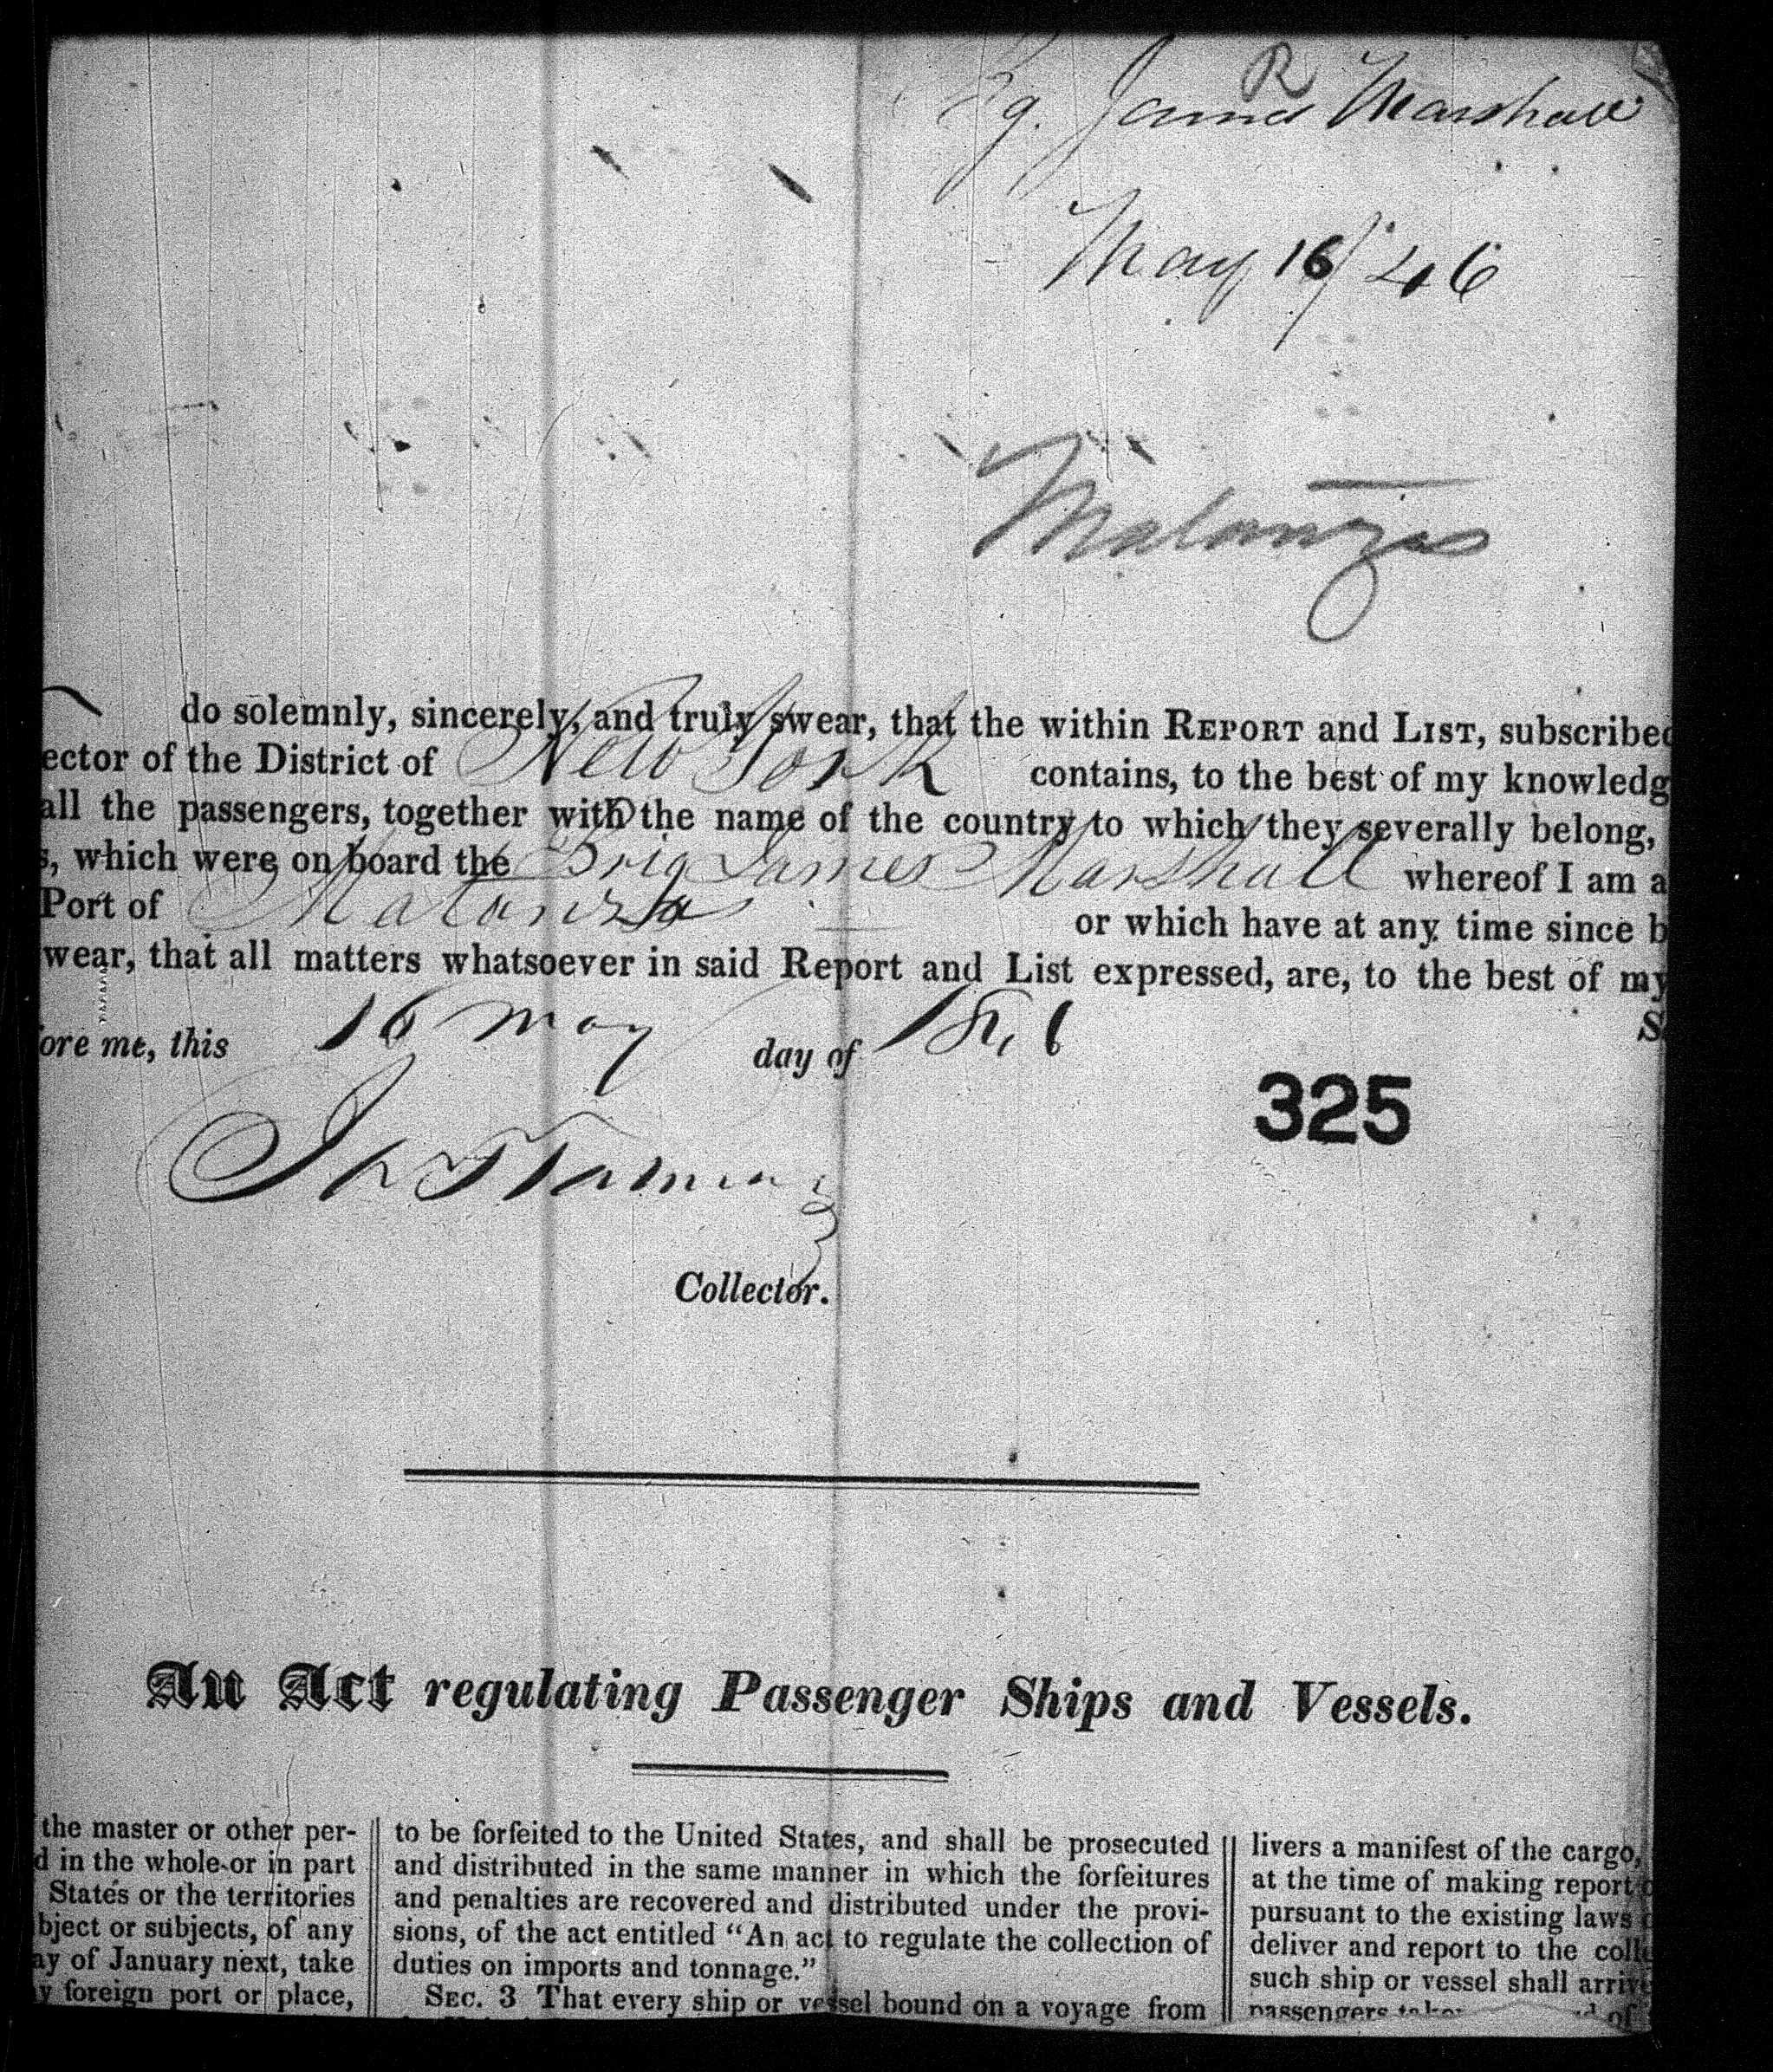 R
Bg. James Marshall
May 16/46
Matanzas
do solemnly, sincerely, and truly swear, that the within REPORT and LIST, subscribed
ector of the District of New York contains, to the best of my knowledg
all the passengers, together with the name of the country to which they severally belong,
s, which were on board the Brig James Marshall whereof I am a
Port of Matanzas or which have at any time since b
wear, that all matters whatsoever in said Report and List expressed, are, to the best of my
S
ore me, this 16 May day of 1846
325
Collector.
An Act regulating Passenger Ships and Vessels.
the master or other per-
d in the whole or in part
States or the territories
bject or subjects, of any
ay of January next, take
y foreign port or place,
to be forfeited to the United States, and shall be prosecuted
and distributed in the same manner in which the forfeitures
and penalties are recovered and distributed under the provi-
sions, of the act entitled “An act to regulate the collection of
duties on imports and tonnage.”
SEC. 3 That every ship or vessel bound on a voyage from
livers a manifest of the cargo,
at the time of making report
pursuant to the existing laws
deliver and report to the coll
such ship or vessel shall arrive
passengers of